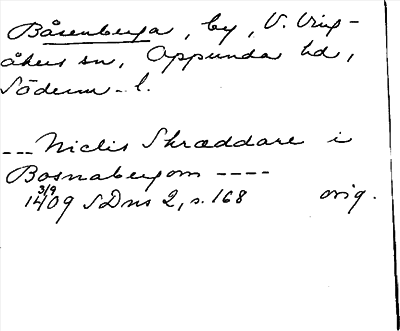 Båsenberga, by, V. Ving-
åkers sn, Oppunda hd,
Söderm. l.
--- Niclis Skræddare i
Bosnabergom ----
3/9
1409 SDns 2, s. 168 orig.